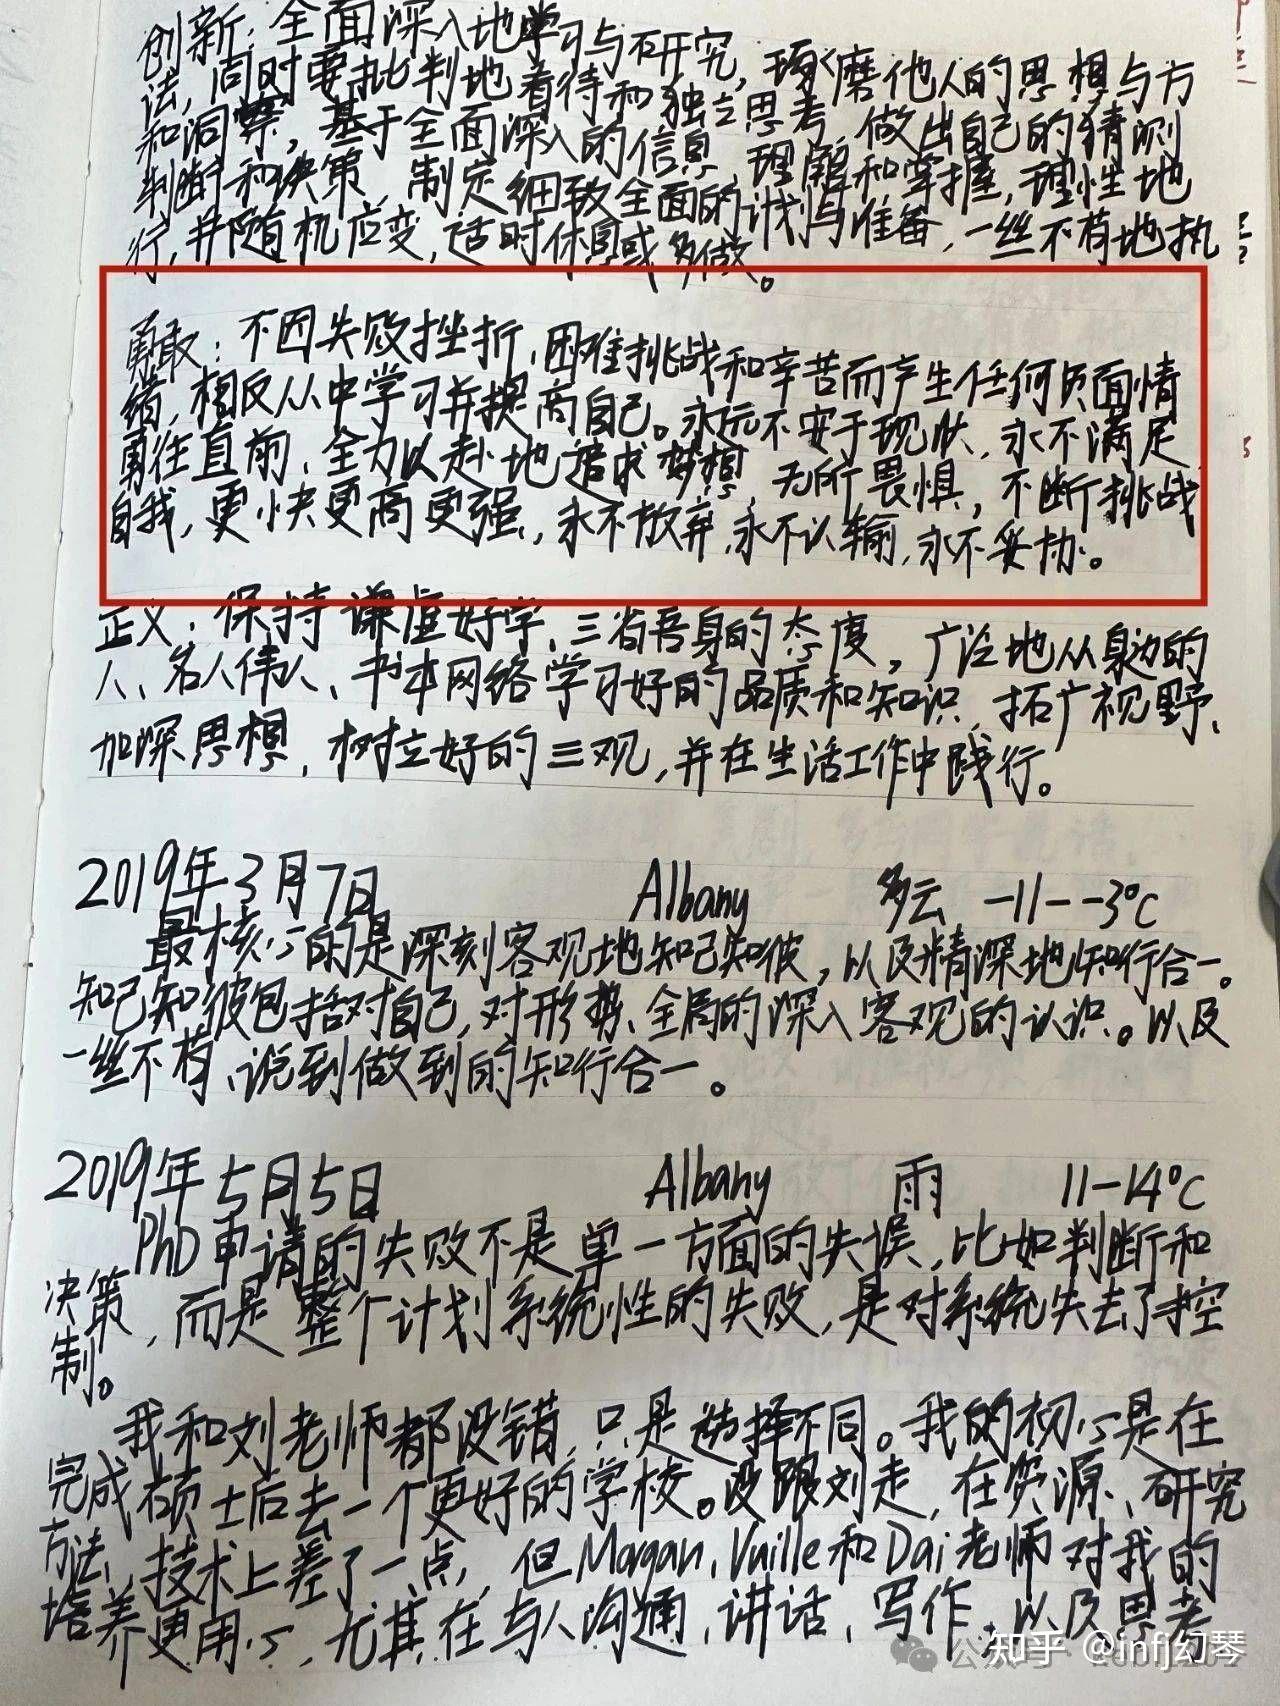 创新：全面深入地学习与研究，琢磨他人的思想与方
法，同时要批判地看待和独立思考，做出自己的猜测
和洞察，基于全面深入的信息、理解和掌握，理性地
判断和决策，制定细致全面的计划与准备，一丝不苟地执
行，并随机应变，适时休息或多做。
勇敢：不因失败挫折、困难挑战和辛苦而产生任何负面情
绪，相反从中学习并提高自己。永远不安于现状，永不满足，
勇往直前、全力以赴地追求梦想，无所畏惧，不断挑战
自我，更快更高更强，永不放弃，永不认输，永不妥协。
正义：保持谦虚好学、三省吾身的态度，广泛地从身边的
人、名人伟人、书本网络学习好的品质和知识，拓广视野、
加深思想，树立好的三观，并在生活工作中践行。
2019年3月7日 Albany 多云 -11--3°C
最核心的是深刻客观地知己知彼，以及精深地知行合一。
知己知彼包括对自己，对形势、全局的深入客观的认识。以及
一丝不苟、说到做到的知行合一。
2019年5月5日 Albany 雨 11-14°C
PhD申请的失败不是单一方面的失误，比如判断和
决策，而是整个计划系统性的失败，是对系统失去了控
制。
我和刘老师都没错，只是选择不同。我的初心是在
完成硕士后去一个更好的学校。没跟刘走，在资源、研究
方法、技术上差了一点，但Morgan, Vuille和Dai老师对我的
培养更用心，尤其在与人沟通，讲话、写作，以及思考
公众号
知乎 @infj幻琴